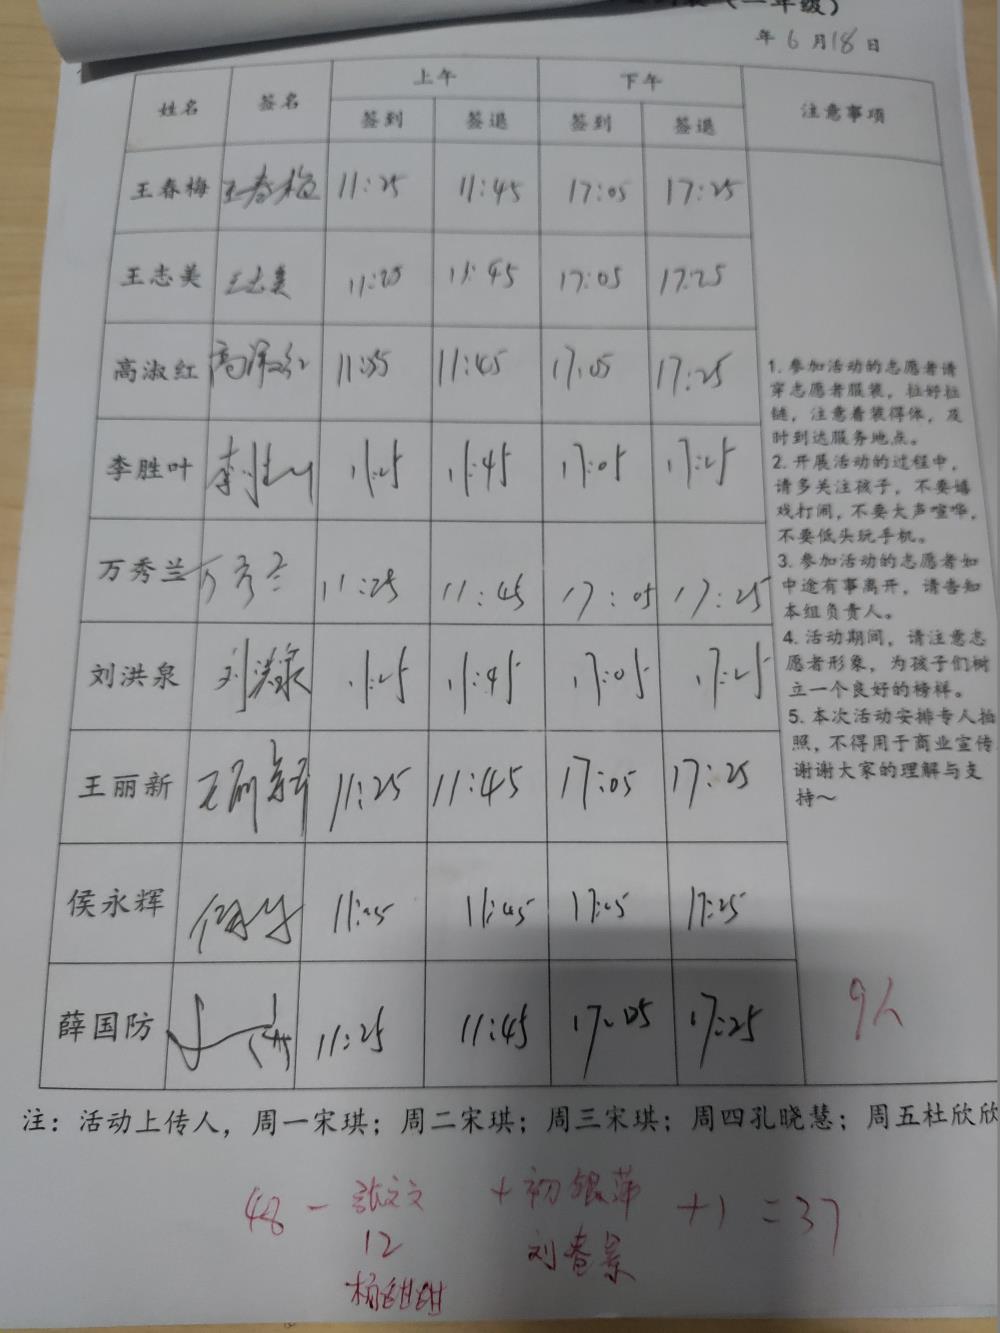 （一年级）
年 6 月 18 日
姓名 签名 上午 下午 注意事项
签到 签退 签到 签退
王春梅 王春梅 11:25 11:45 17:05 17:25
王志美 王志美 11:25 11:45 17:05 17:25
高淑红 高淑红 11:35 11:45 17:05 17:25
李胜叶 李胜叶 11:25 11:45 17:05 17:25
万秀兰 万秀兰 11:25 11:45 17:05 17:25
刘洪泉 刘洪泉 11:25 11:45 17:05 17:25
王丽新 王丽新 11:25 11:45 17:05 17:25
侯永辉 11:25 11:45 17:05 17:25
薛国防 11:25 11:45 17:05 17:25
1. 参加活动的志愿者请
穿志愿者服装，拉好拉
链，注意着装得体，及
时到达服务地点。
2. 开展活动的过程中，
请多关注孩子，不要嬉
戏打闹，不要大声喧哗，
不要低头玩手机。
3. 参加活动的志愿者如
中途有事离开，请告知
本组负责人。
4. 活动期间，请注意志
愿者形象，为孩子们树
立一个良好的榜样。
5. 本次活动安排专人拍
照，不得用于商业宣传
谢谢大家的理解与支
持～
9人
注：活动上传人，周一宋琪；周二宋琪；周三宋琪；周四孔晓慧；周五杜欣欣
48 - 张文文 + 初银萍 +1 = 37
12 刘春景
杨甜甜